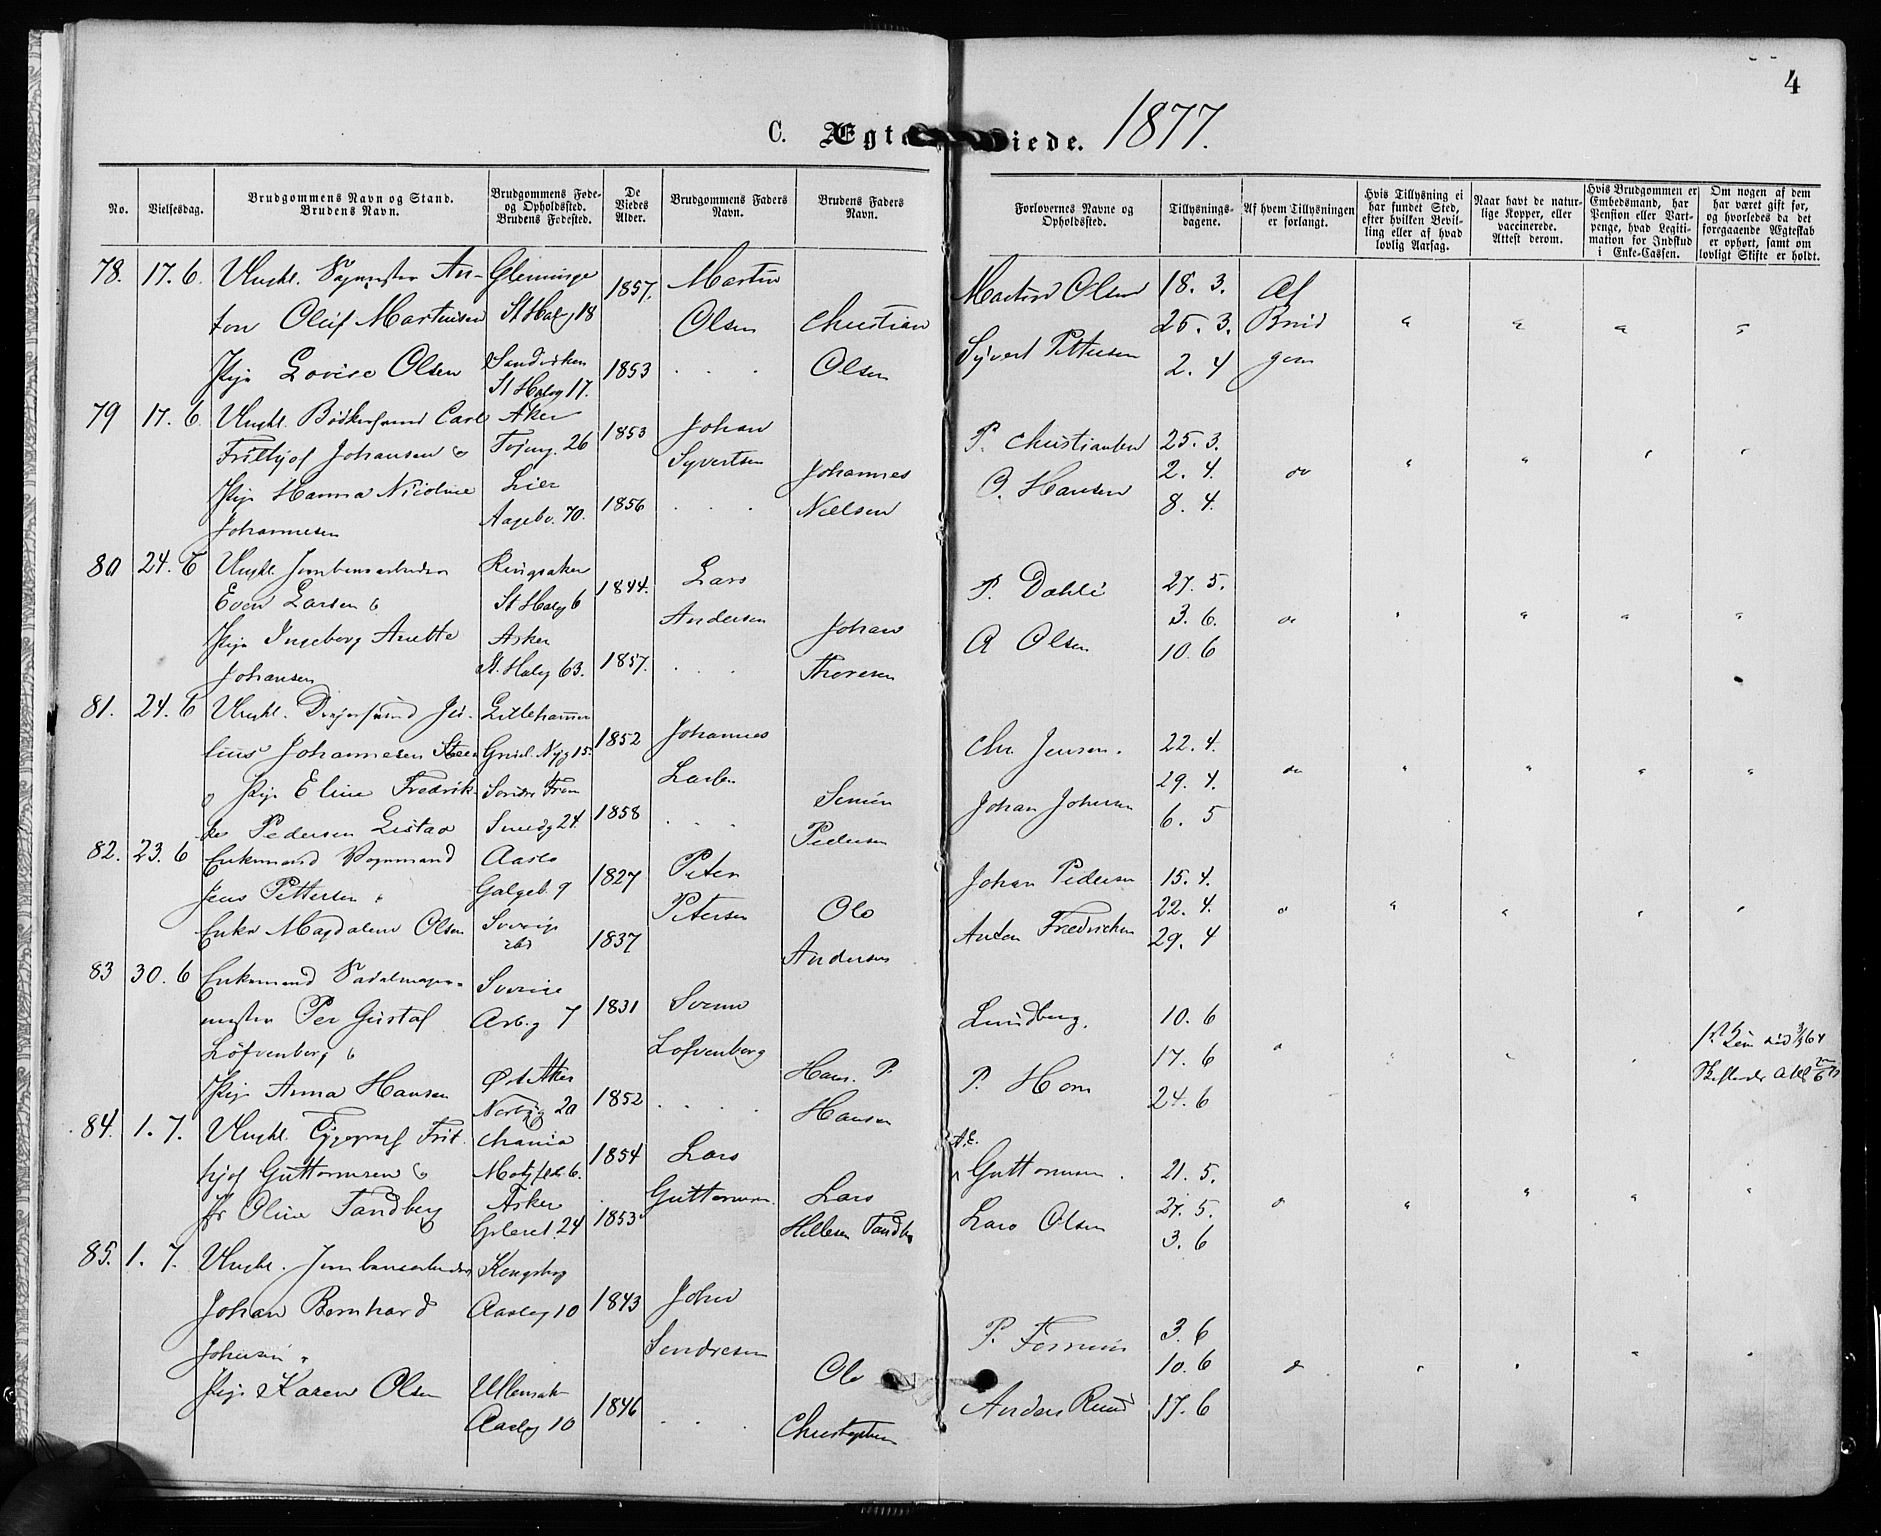 4
C. Ægte viede. 1877.
No.
Vielsesdag.
Brudgommens Navn og Stand.
Brudens Navn.
Brudgommens Føde-
og Opholdssted.
Brudens Fødested.
De
Viedes
Alder.
Brudgommens Faders
Navn.
Brudens Faders
Navn.
Forlovernes Navne og
Opholdssted.
Tillysnings-
dagene.
Af hvem Tillysningen
er forlangt.
Hvis Tillysning ei
har fundet Sted,
efter hvilken Bevil-
ling eller af hvad
lovlig Aarsag.
Naar havt de natur-
lige Kopper, eller
vaccinerede.
Attest derom.
Hvis Brudgommen er
Embedsmand, har
Pension eller Vart-
penge, hvad Legiti-
mation for Indskud
i Enke-Cassen.
Om nogen af dem
har været gift før,
og hvorledes da det
foregaaende Ægteskab
er ophørt, samt om
lovligt Skifte er holdt.
78. 17. 6. Ungkl. An- Glemminge 1857. Martin Martin Olsen 18. 3. Af
ton Oluf Martinsen St Halvg 18 Olsen Christian 25. 3. Brud
Pige Lovise Olsen Sandviken 1853 Olsen Syvert Pettersen 2. 4 gom
St Halvg 17.
79 17. 6. Ungkl. Bødkersvend Carl Aker 1853 Johan P. Christiansen 25. 3.
Frithjof Johansen & Tøieng. 26 Syvertsen Johannes 2. 4. do
Pige Hanna Nicoline Lier 1856 Nielsen O. Hansen 8. 4.
Johannesen Aagebv. 70.
80 24. 6 Ungkl. Jernbanearbeider Ringsaker 1844. Lars P. Dahle 27. 5.
Even Larsen & St Halvg 6 Andersen Johan 3. 6. do
Pige Ingeborg Anette Asker 1857. Thoresen A Olsen 10. 6
Johansen St. Halvg 63.
81. 24. 6 Ungkl. Dreiersvend Ju- Lillehammer 1852 Johannes Chr. Jensen. 22. 4.
lius Johannesen Steen Grønl. Nygg 15. Larsen 29. 4. do
& Pige Eline Fredrik- Søndre Fron 1858 Simen Johan Johnsen 6. 5
ke Pedersen Listad Smedg 24. Pedersen
82. 23. 6 Enkemand Vognmand Aaslo 1827 Peter Johan Pedersen 15. 4.
Jens Pettersen & Galgeb. 9 Petersen Ole 22. 4.
Enke Magdalene Olsen Sverige 1837 Andersen Anton Fredriksen 29. 4
ibd
83 30. 6 Enkemand Sadelmager- Sverige 1831 Svenn Lundberg. 10. 6
mester Per Gustaf Arbg 7 Løfvenberg 17. 6
Løfvenberg & Hans P.
Pige Anna Hansen Øst Aker 1852 Hansen P. Horn 24. 6
Norbyg 20
84. 1. 7. Ungkl. Typograf Frit- Chania 1854 Lars A. E. Guttormsen. 21. 5.
hjof Guttormsen & Motzfeldtg. 6. Guttormsen. Lars 27. 5.
Jfr Oline Tandberg Asker 1853 Hellesen Tandb. Lars Olsen 3. 6
Grøleret. 24
85. 1. 7. Ungkl. Jernbanearbeider Kongsbrg 1843 John
Johan Bernhard Aaslog 10 Sondresen P. Fornæus 3. 6
Johnsen & Ole 10. 6
Pige Karen Olsen Ullensak 1846 Christophersen Anders Ruud 17. 6
Aaslog 10